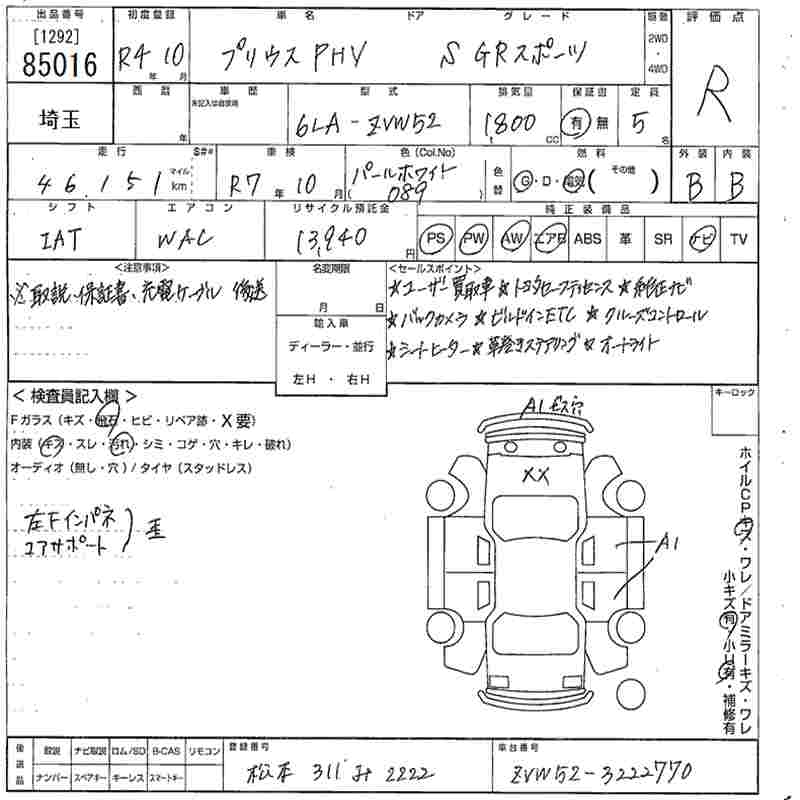 出品番号 初度登録 車名 ドア グレード 駆動 評価点
[1292]
85016 R4年 10月 プリウスPHV S GRスポーツ 2WD・4WD R
埼玉 西暦 年 車歴 未記入は自家用 型式 6LA-ZVW52 排気量 1800 CC 保証書 有 無 定員 5名
走行 S## 車検 色(Col.No) 色替 燃料 外装 内装
46,151 マイル km R7年 10月 パールホワイト 089 G・D・電気( その他 ) B B
シフト エアコン リサイクル預託金 純正装備品
IAT WAC 13,940円 PS PW AW エアB ABS 革 SR ナビ TV
<注意事項> 名変期限 <セールスポイント>
※取説、保証書、充電ケーブル 後送 ★ユーザー買取車★トヨタセーフティセンス★純正ナビ
月 日 ★バックカメラ★ビルドインETC ★クルーズコントロール
輸入車
ディーラー・並行 ★シートヒーター★革巻きステアリング★オートライト
左H ・ 右H
<検査員記入欄> キーロック
Fガラス(キズ・飛石・ヒビ・リペア跡・X要)
内装(キズ・スレ・汚れ・シミ・コゲ・穴・キレ・破れ)
オーディオ(無し・穴)/タイヤ(スタッドレス)
左Fインパネ
コアサポート ) 歪
A1 ビス穴
XX
A1
ホイルCPキズ・ワレ/ドアミラーキズ・ワレ
小キズ有/小U有・補修有
後送品 取説 ナビ取説 ロム/SD B-CAS リモコン 登録番号 車台番号
ナンバー スペアキー キーレス スマートキー 松本 311 み 2222 ZVW52-3222770